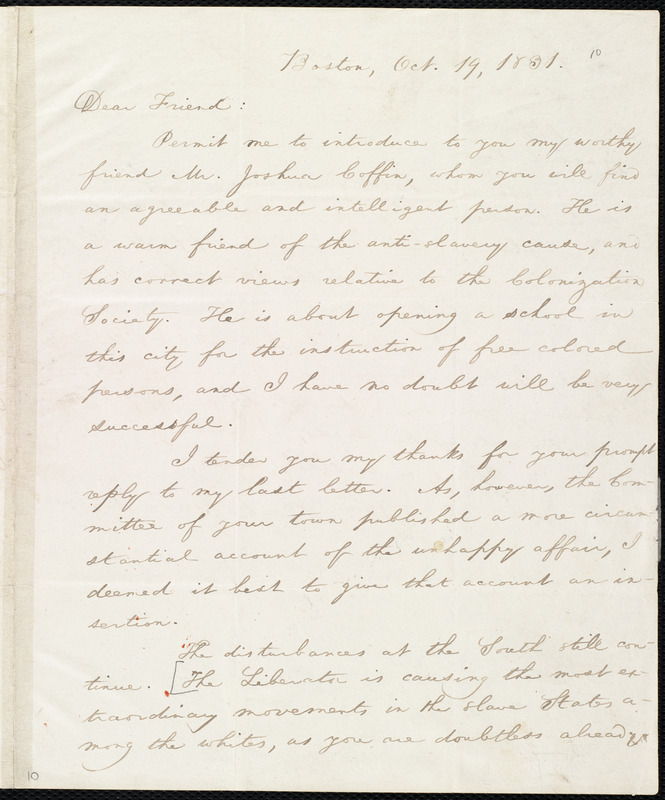 Boston, Oct. 19, 1831. 10
Dear Friend:
Permit me to introduce to you my worthy
friend Mr. Joshua Coffin, whom you will find
an agreeable and intelligent person. He is
a warm friend of the anti-slavery cause, and
has correct views relative to the Colonization
Society. He is about opening a school in
this city for the instruction of free colored
persons, and I have no doubt will be very
successful.
I tender you my thanks for your prompt
reply to my last letter. As, however, the Com-
mittee of your town published a more circum-
stantial account of the unhappy affair, I
deemed it best to give that account an in-
sertion.
The disturbances at the South still con-
tinue. [The Liberator is causing the most ex-
traordinary movements in the slave States a-
mong the whites, as you are doubtless already
10